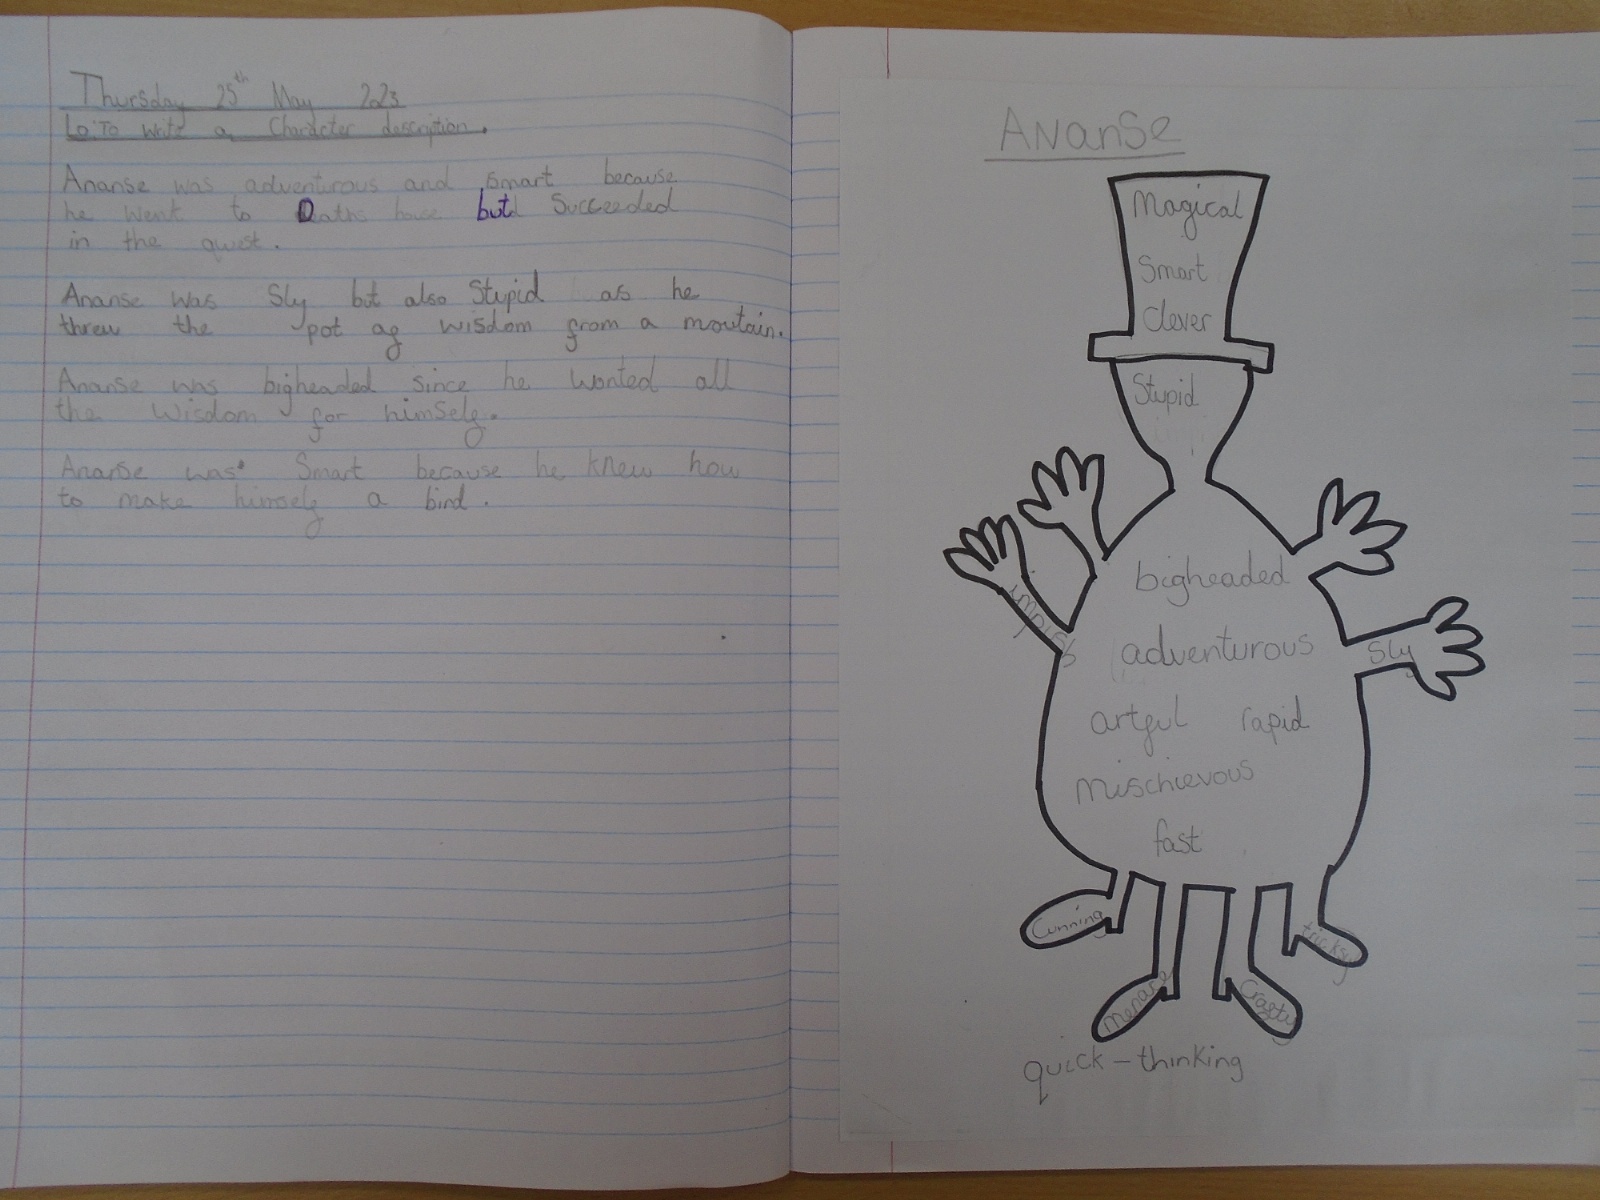 Thursday 25th May 2023
Lo: To write a Character description.
Ananse was adventurous and smart because
he went to Deaths house but Succeeded
in the quest.
Ananse was Sly but also Stupid as he
threw the pot of wisdom from a moutain.
Ananse was bigheaded since he wanted all
the Wisdom for himself.
Ananse was Smart because he knew how
to make himself a bird.
Ananse
Magical
Smart
Clever
Stupid
bigheaded
impish
adventurous
Sly
artful rapid
Mischievous
fast
Cunning
tricksy
menace
Crafty
quick-thinking